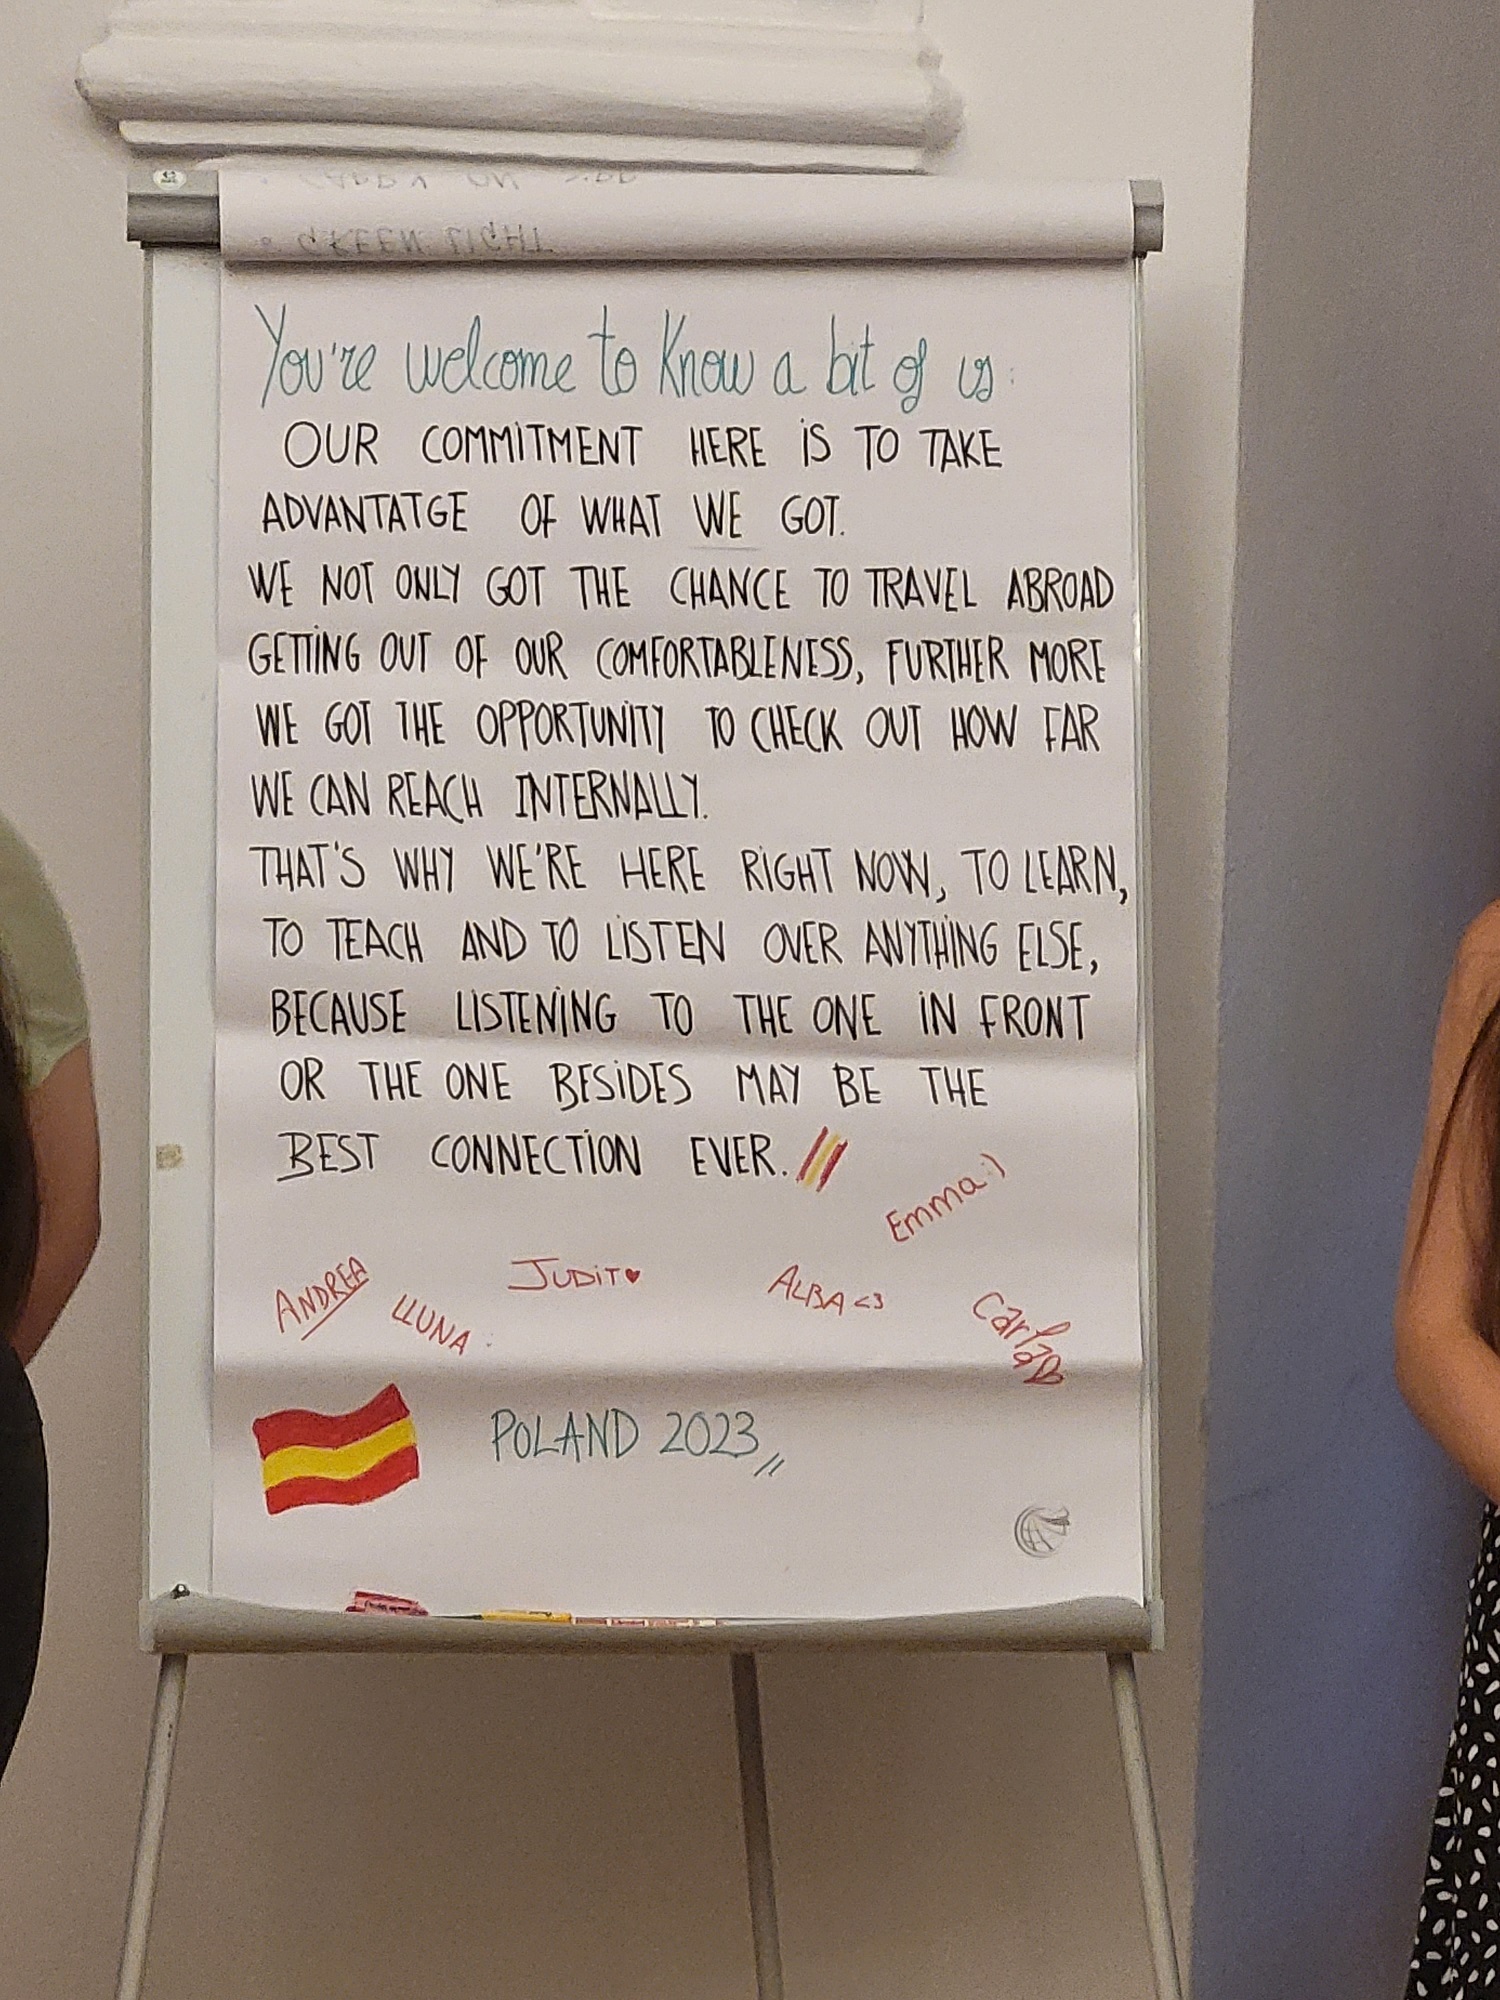 GREEN LIGHT
You're welcome to Know a bit of us:
OUR COMMITMENT HERE IS TO TAKE
ADVANTATGE OF WHAT WE GOT.
WE NOT ONLY GOT THE CHANCE TO TRAVEL ABROAD
GETTING OUT OF OUR COMFORTABLENESS, FURTHER MORE
WE GOT THE OPPORTUNITY TO CHECK OUT HOW FAR
WE CAN REACH INTERNALLY.
THAT'S WHY WE'RE HERE RIGHT NOW, TO LEARN,
TO TEACH AND TO LISTEN OVER ANYTHING ELSE,
BECAUSE LISTENING TO THE ONE IN FRONT
OR THE ONE BESIDES MAY BE THE
BEST CONNECTION EVER.
Emma :)
ANDREA LLUNA JUDIT♥ ALBA <3 Carla
POLAND 2023